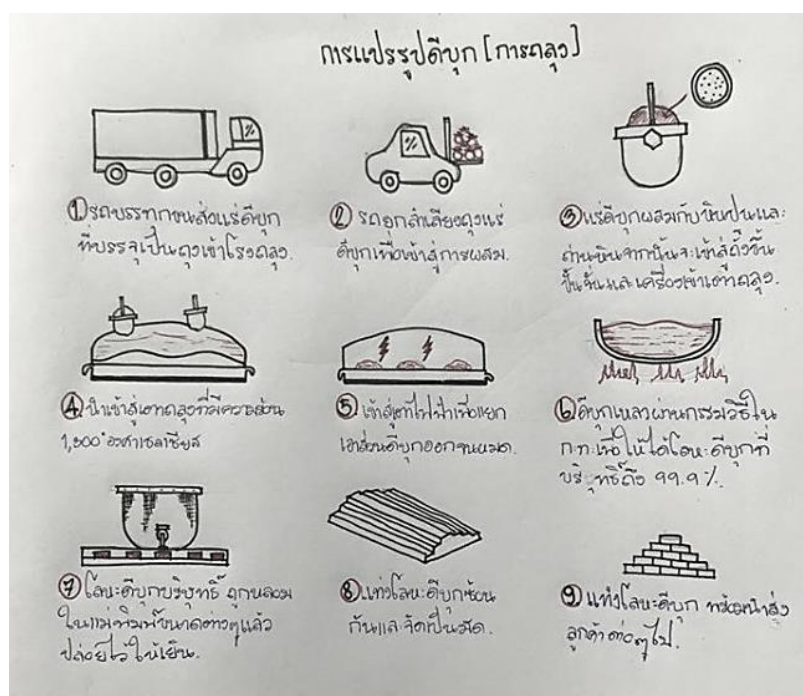 การแปรรูปดีบุก [การถลุง]
① รถบรรทุกขนส่งแร่ดีบุก
ที่บรรจุเป็นถุงเข้าโรงถลุง.
② รถยกลำเลียงถุงแร่
ดีบุกเพื่อเข้าสู่การผสม.
③ แร่ดีบุกผสมกับหินปูนและ
ถ่านหินจากนั้นจะเข้าสู่ถังขึ้น
ปั้นจั่นและเครื่องเข้าเตาถลุง.
④ นำเข้าสู่เตาถลุงที่มีความร้อน
1,300° องศาเซลเซียส
⑤ เข้าสู่เตาไฟฟ้าเพื่อแยก
เอาส่วนดีบุกออกจนหมด.
⑥ ดีบุกเหลวผ่านกรรมวิธีใน
ก.ท.เพื่อให้ได้โลหะดีบุกที่
บริสุทธิ์ถึง 99.9%.
⑦ โลหะดีบุกบริสุทธิ์ ถูกหลอม
ในแม่พิมพ์ขนาดต่างๆแล้ว
ปล่อยไว้ให้เย็น.
⑧ แท่งโลหะดีบุกซ้อน
กันและจัดเป็นมัด.
⑨ แท่งโลหะดีบุก พร้อมนำส่ง
ลูกค้าต่อๆไป.